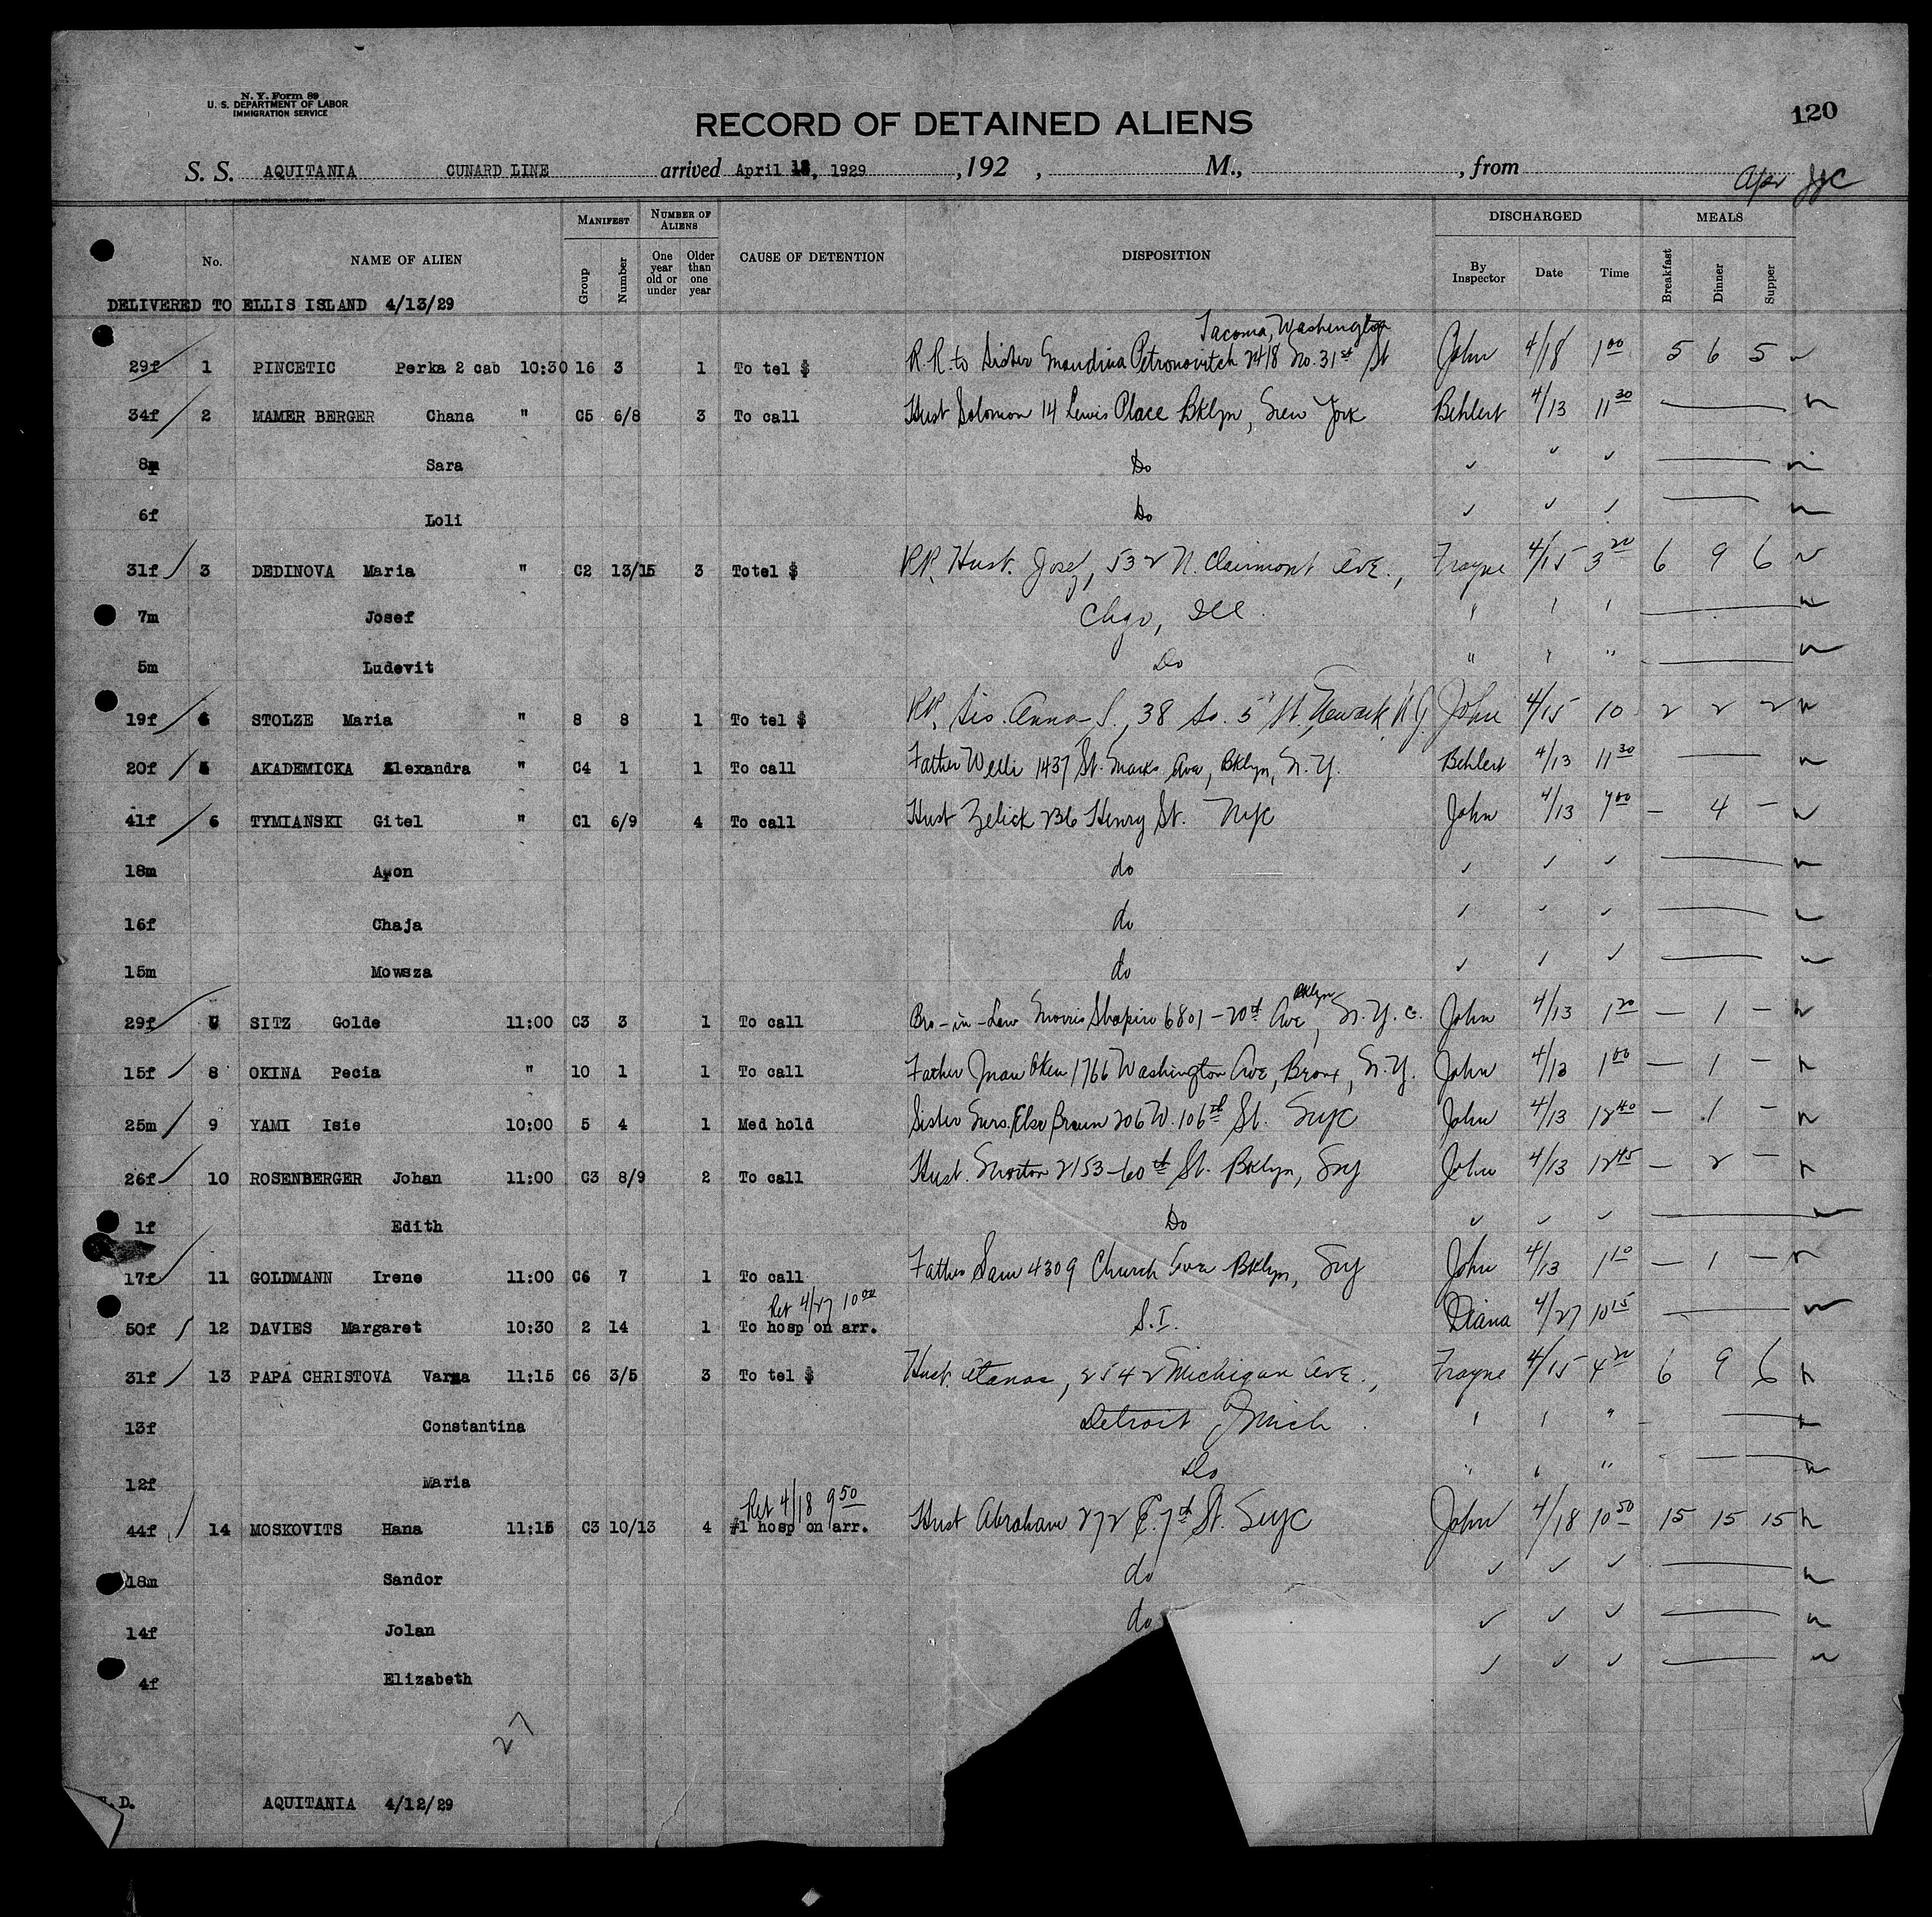 N. Y. Form 89
U. S. DEPARTMENT OF LABOR
IMMIGRATION SERVICE
120
RECORD OF DETAINED ALIENS
S. S. AQUITANIA CUNARD LINE arrived April 12, 1929, 192 , M., , from
Apr
MANIFEST NUMBER OF ALIENS DISCHARGED MEALS
No. NAME OF ALIEN Group Number One year old or under Older than one year CAUSE OF DETENTION DISPOSITION By Inspector Date Time Breakfast Dinner Supper
DELIVERED TO ELLIS ISLAND 4/13/29
Tacoma, Washington
29f 1 PINCETIC Perka 2 cab 10:30 16 3 1 To tel $ R.R. to Sister Petronovitch 2418 No. 31st St John 4/18 1 00 5 6 5
34f 2 MAMER BERGER Chana " C5 6/8 3 To call Hust Solomon 14 Lewis Place Bklyn, New York Behlert 4/13 11 30
8m Sara Do
6f Loli Do
31f 3 DEDINOVA Maria " C2 13/15 3 Totel $ RR. Hust. Josef, 532 N. Clairmont Ave., Frayne 4/15 3 20 6 9 6
7m Josef Chgo, Ill.
5m Ludevit Do " " "
19f 4 STOLZE Maria " 8 8 1 To tel $ RR. Sis. Anna S., 38 So. 5 St, Newark NJ. John 4/15 10 2 2 2
20f 5 AKADEMICKA Alexandra " C4 1 1 To call Father Welli 1437 St. Marks Ave, Bklyn, N.Y. Behlert 4/13 11 30
41f 6 TYMIANSKI Gitel " C1 6/9 4 To call Hust Zelick 236 Henry St. NYC John 4/13 — 4 —
18m do
16f Chaja do
15m Mowsza do
29f SITZ Golde 11:00 C3 3 1 To call Bro-in-Law Morris Shapiro 6801-20th Ave Bklyn, N.Y.C. John 4/13 1 20 — 1 —
15f 8 OKINA Pecia " 10 1 1 To call Father Oken 1766 Washington Ave, Bronx, N.Y. John 4/13 1 00 — 1 —
25m 9 YAMI Isie 10:00 5 4 1 Med hold Sister Mrs. Elsa Braun 206 W. 106th St. NYC John 4/13 12 40 — 1 —
26f 10 ROSENBERGER Johan 11:00 C3 8/9 2 To call Hust. Morton 2153-60th St. Bklyn, NY John 4/13 12 45 — 2 —
1f Edith Do
17f 11 GOLDMANN Irene 11:00 C6 7 1 To call Father Sam 4309 Church Ave Bklyn, NY John 4/13 1 10 — 1 —
Ret 4/27 10 00
50f 12 DAVIES Margaret 10:30 2 14 1 To hosp on arr. S.I. Diana 4/27 10 15
31f 13 PAPA CHRISTOVA Varna 11:15 C6 3/5 3 To tel $ Hust. Atanas, 2542 Michigan Ave., Frayne 4/15 4 20 6 9 6
13f Constantina Detroit Mich.
12f Maria Do
Ret 4/18 9 50
44f 14 MOSKOVITS Hana 11:15 C3 10/13 4 #1 hosp on arr. Hust Abraham 272 E. 7th St. NYC John 4/18 10 50 15 15 15
18m Sandor do
14f Jolan do
4f Elizabeth
27
AQUITANIA 4/12/29